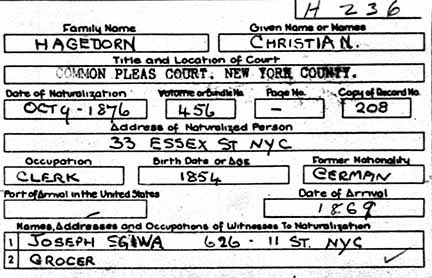 H 236
Family Name Given Name or Names
HAGEDORN CHRISTIAN.
Title and Location of Court
COMMON PLEAS COURT, NEW YORK COUNTY.
Date of Naturalization Volume or Bundle No. Page No. Copy of Record No.
OCT 9 - 1876 456 - 208
Address of Naturalized Person
33 ESSEX ST NYC
Occupation Birth Date or Age Former Nationality
CLERK 1854 GERMAN
Port of Arrival in the United States Date of Arrival
- 1869
Names, Addresses and Occupations of Witnesses To Naturalization
1 JOSEPH 626 - 11 ST. NYC
2 GROCER